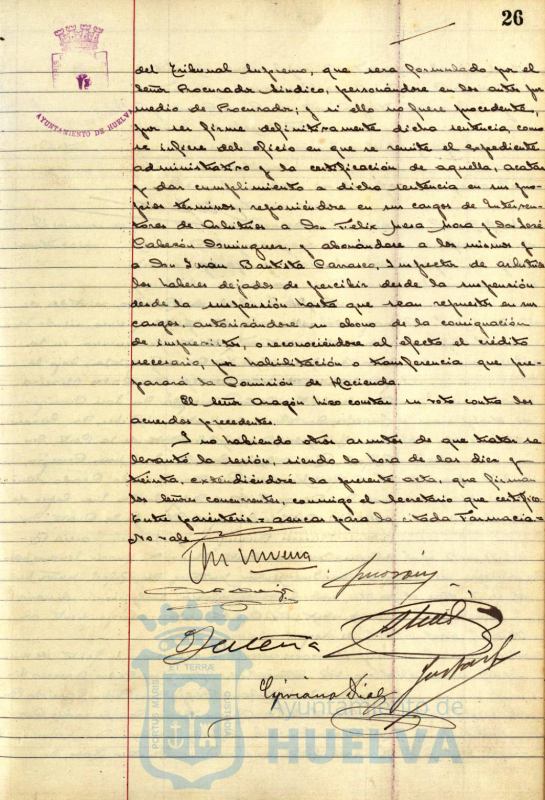 26
AYUNTAMIENTO DE HUELVA
del Tribunal Supremo, que será formulado por el
Señor Procurador Síndico, personándose en los autos por
medio de Procurador; y si ello no fuere procedente,
por ser firme definitivamente dicha sentencia, como
se infiere del oficio en que se remite el expediente
administrativo y la certificación de aquella, acatar
y dar cumplimiento a dicha sentencia en sus pro-
pios términos, reponiéndose en sus cargos de Interven-
tores de Arbitrios a Don Felix Mesa Mora y Don José
Calderón Dominguez, y abonándose a los mismos y
a Don Juan Bautista Carrasco, Inspector de arbitrios
los haberes dejados de percibir desde la suspensión
desde la suspensión hasta que sean repuestos en sus
cargos, autorizándose su abono de la consignación
de imprevistos, o reconociéndose al efecto el crédito
necesario, por habilitación o transferencia que pre-
parará la Comisión de Hacienda.
El señor Aragón hizo constar su voto contra los
acuerdos precedentes.
Y no habiendo otros asuntos de que tratar se
levantó la sesión, siendo la hora de las diez y
treinta, extendiéndose la presente acta, que firman
los señores concurrentes, conmigo el Secretario que certifica.
Entre paréntesis = azucar para la citada Farmacia =
No vale.
Cipriano Diaz
PORTUS MARIS ET TERRAE CUSTODIA
Ayuntamiento de
HUELVA